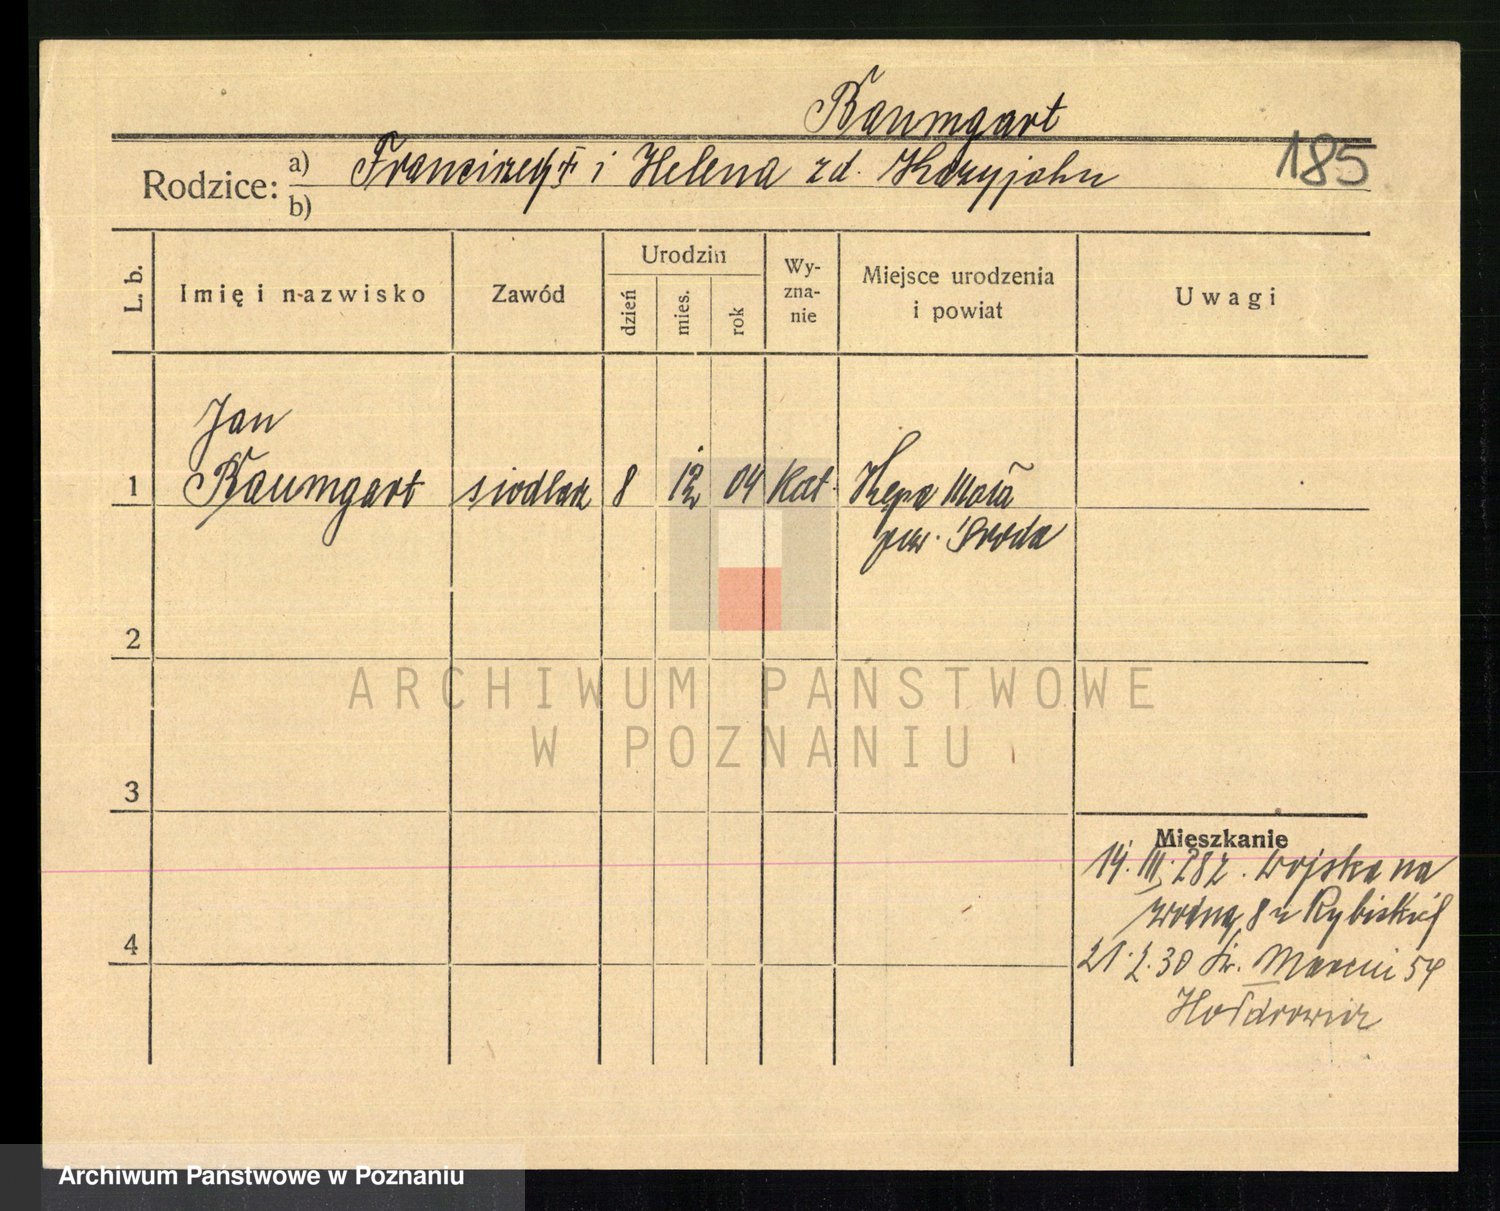 Baumgart
185
Rodzice: a) Franciszek † i Helena zd. Krzyjohn
b)
L. b. Imię i nazwisko Zawód Urodzin dzień mies. rok Wyznanie Miejsce urodzenia i powiat Uwagi
Jan
1 Baumgart siodlarz 8 12 04 kat. Kępa Mała
pow. Środa
2
ARCHIWUM PAŃSTWOWE
W POZNANIU
3
Mieszkanie
14. III. 28 z. wojska na
wodną 8 u
4
21. 2. 30 św. Marcin 54
Archiwum Państwowe w Poznaniu